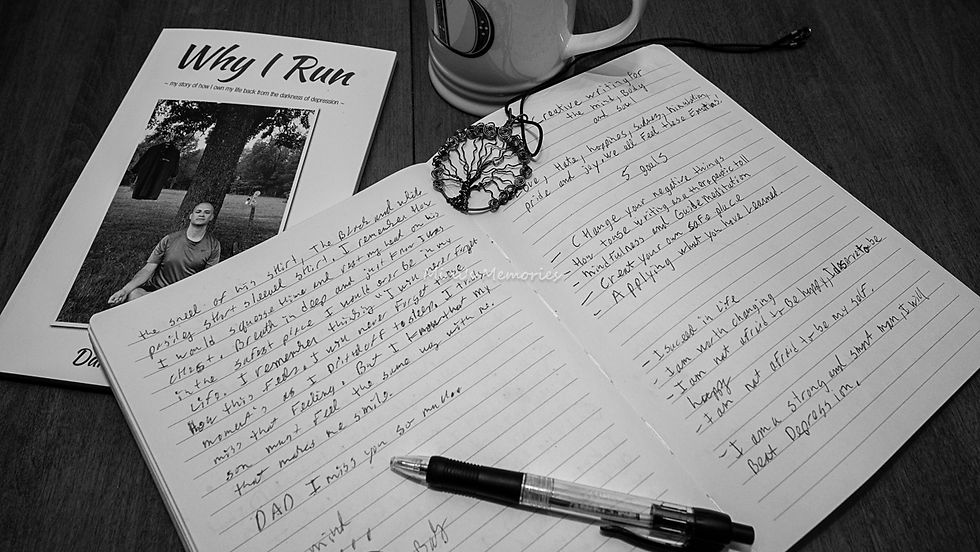 Why I Run
~ my story of how I won my life back from the darkness of depression ~
Da
the smell of his shirt, The Black and white
paisley short sleeved shirt, I remember How
I would squeese Hime and rest my head on his
CHest, Breath in deep and just know I was
in the safest place I would ever be in my
Life. I remember thinking "I wish never Forget
How this Feels, I wish never Forget this
moment" as I off to sleep. I truly
miss that Feeling, But I know that my
son must Feel the same way with me.
that makes me smile.
DAD I miss you so much...
mind
Body
creative writing for
the mind, Body
and soul
Love, Hate, happines, sadness, Humiliation,
pride and joy. We all Feel these Emotions.
5 goals
- CHange your negative things
- How to use writing as a therapeutic tool
- mindfulness and Guide meditation
- Creat your own safe place
- Applying what you have Learned.
- I succed in life
- I am worth changing
- I am not afraid to be happy, I desire to be
happy
- I am not afraid to be my self.
- I am a strong and smart man, I will
Beat Depression.
MixedMemories